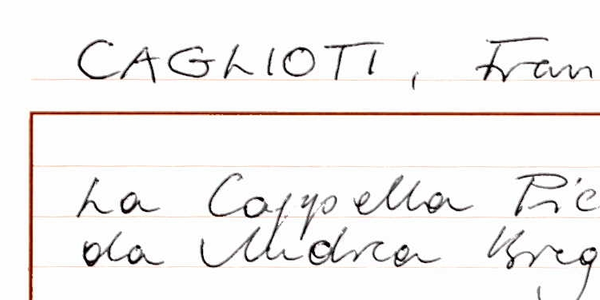 CAGLIOTI, Fran
La Cappella Pic
da Andrea Breg